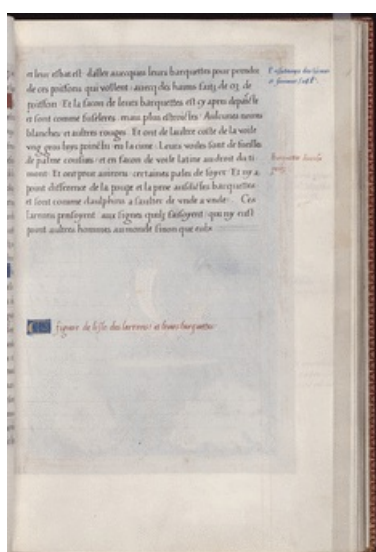 et leur esbat est daller avecques leurs barquettes pour prendre
de ces poissons qui vollent avecq des haims faitz de os de
poisson. Et la facon de leurs barquettes est cy apres depaincte
et sont comme fuseleres mais plus estroictes. Aulcunes noires
blanches et aultres rouges. Et ont de laultre coste de la voile
ung gros boys poinctu en la cime. Leurs voiles sont de fueilles
de palme cousues et en facon de voile latine au droit du ti-
mont. Et ont pour avirons certaines pales de foyer. Et ny a
point difference de la pouge et la proue ausdictes barquettes
et sont comme daulphins a saulter de unde a unde. Ces
larrons pensoyent aux signes quilz faisoyent quil ny eust
point aultres hommes au monde sinon que eulx
figure de lisle des larrons et leurs barquettes